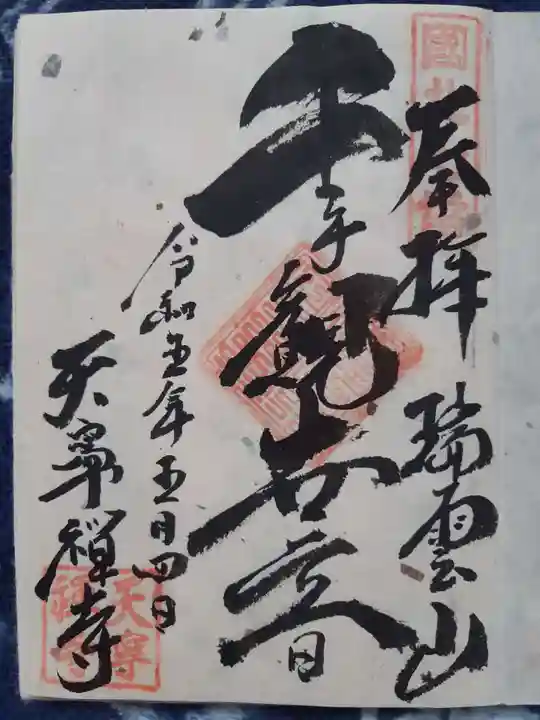 奉拝 瑞雲山
千手觀世音
令和五年五月四日
天寧禅寺
天寧